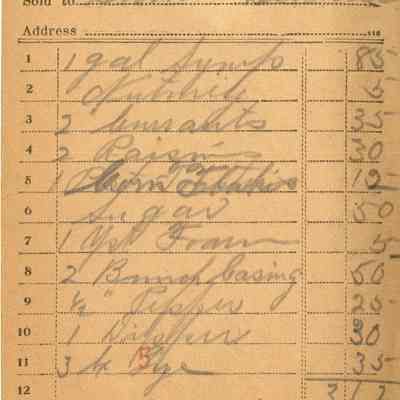 Sold to
Address
1 1 gal Syrup 85
2 Nutmeg 5
3 2 Currants 35
4 2 Raisins 30
5 1 Corn Flakes 15
6 Sugar 50
7 1 Yst Foam 5
8 2 Bunch Casing 50
9 ½ " Pepper 25
10 1 Dipper 30
11 3 35
12 3 1 2